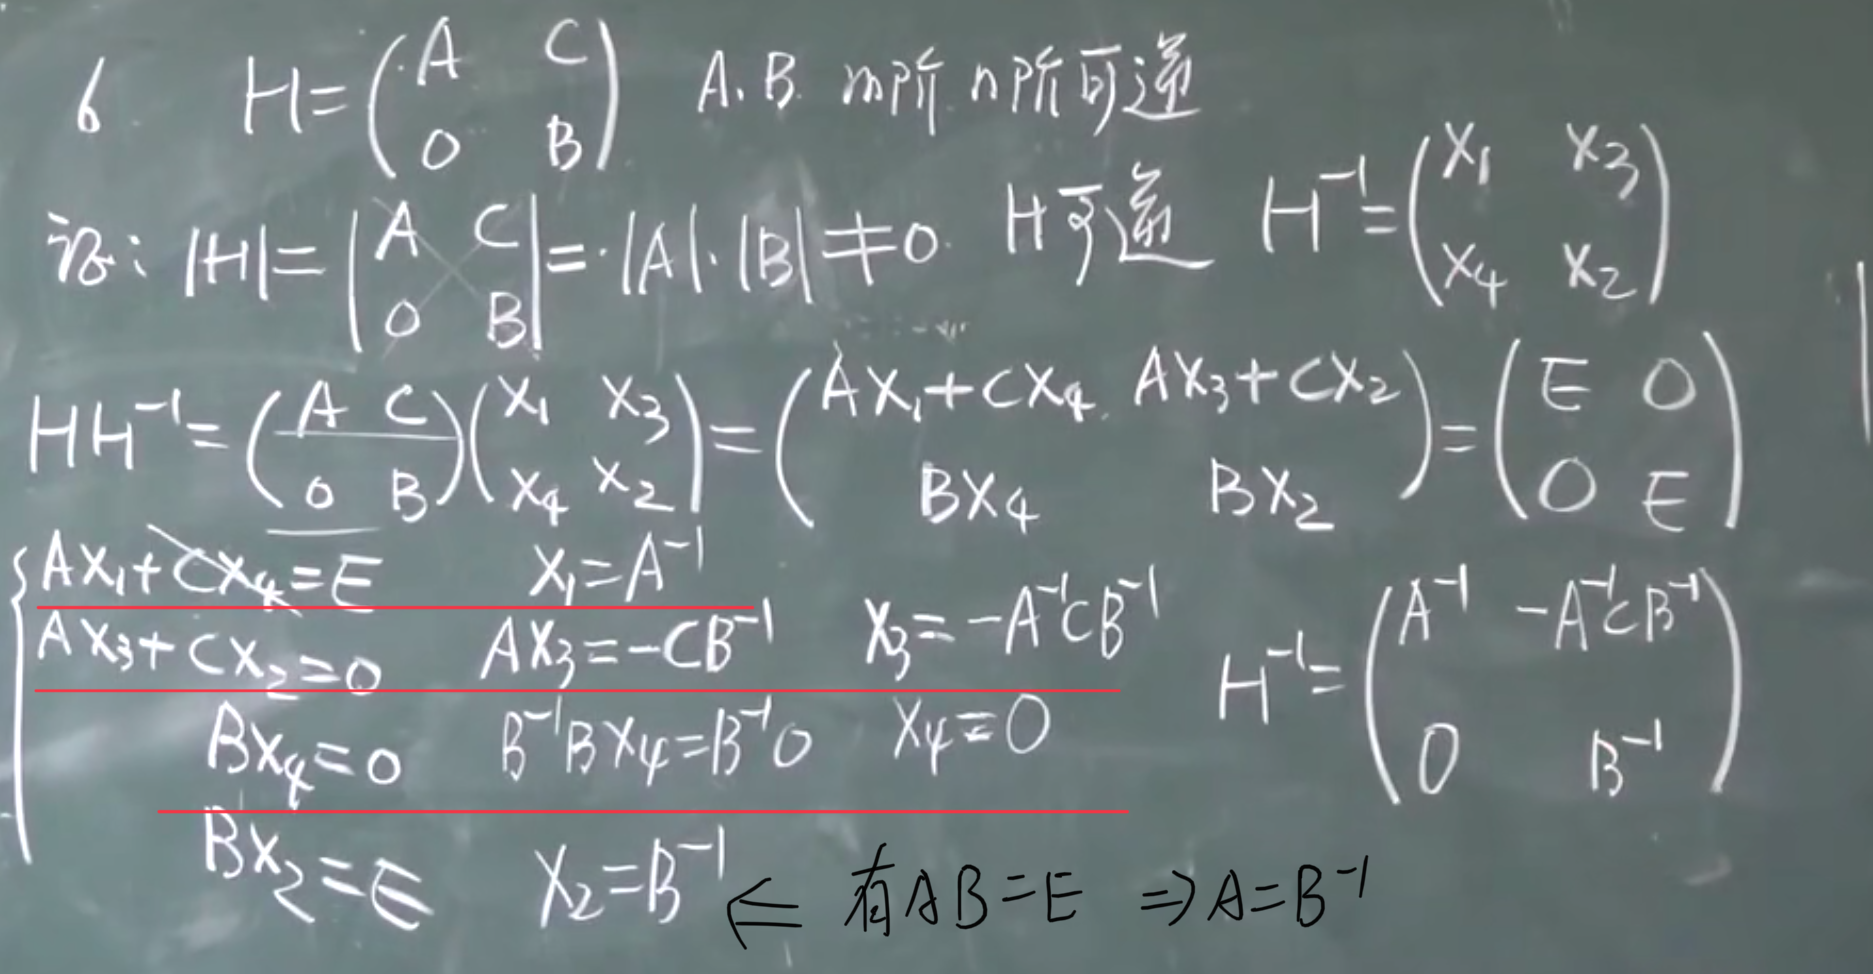 6 H=(A C
0 B) A.B. m阶 n阶可逆
证: |H|=|A C
0 B|=·|A|·|B|≠0. H可逆 H⁻¹=(X₁ X₃
X₄ X₂)
HH⁻¹=(A C
0 B)(X₁ X₃
X₄ X₂)=(AX₁+CX₄ AX₃+CX₂
BX₄ BX₂)=(E O
O E)
{AX₁+CX₄=E X₁=A⁻¹
AX₃+CX₂=0 AX₃=-CB⁻¹ X₃=-A⁻¹CB⁻¹
BX₄=0 B⁻¹BX₄=B⁻¹0 X₄=0
BX₂=E X₂=B⁻¹ ⇐ 有AB=E ⇒A=B⁻¹
H⁻¹=(A⁻¹ -A⁻¹CB⁻¹
0 B⁻¹)